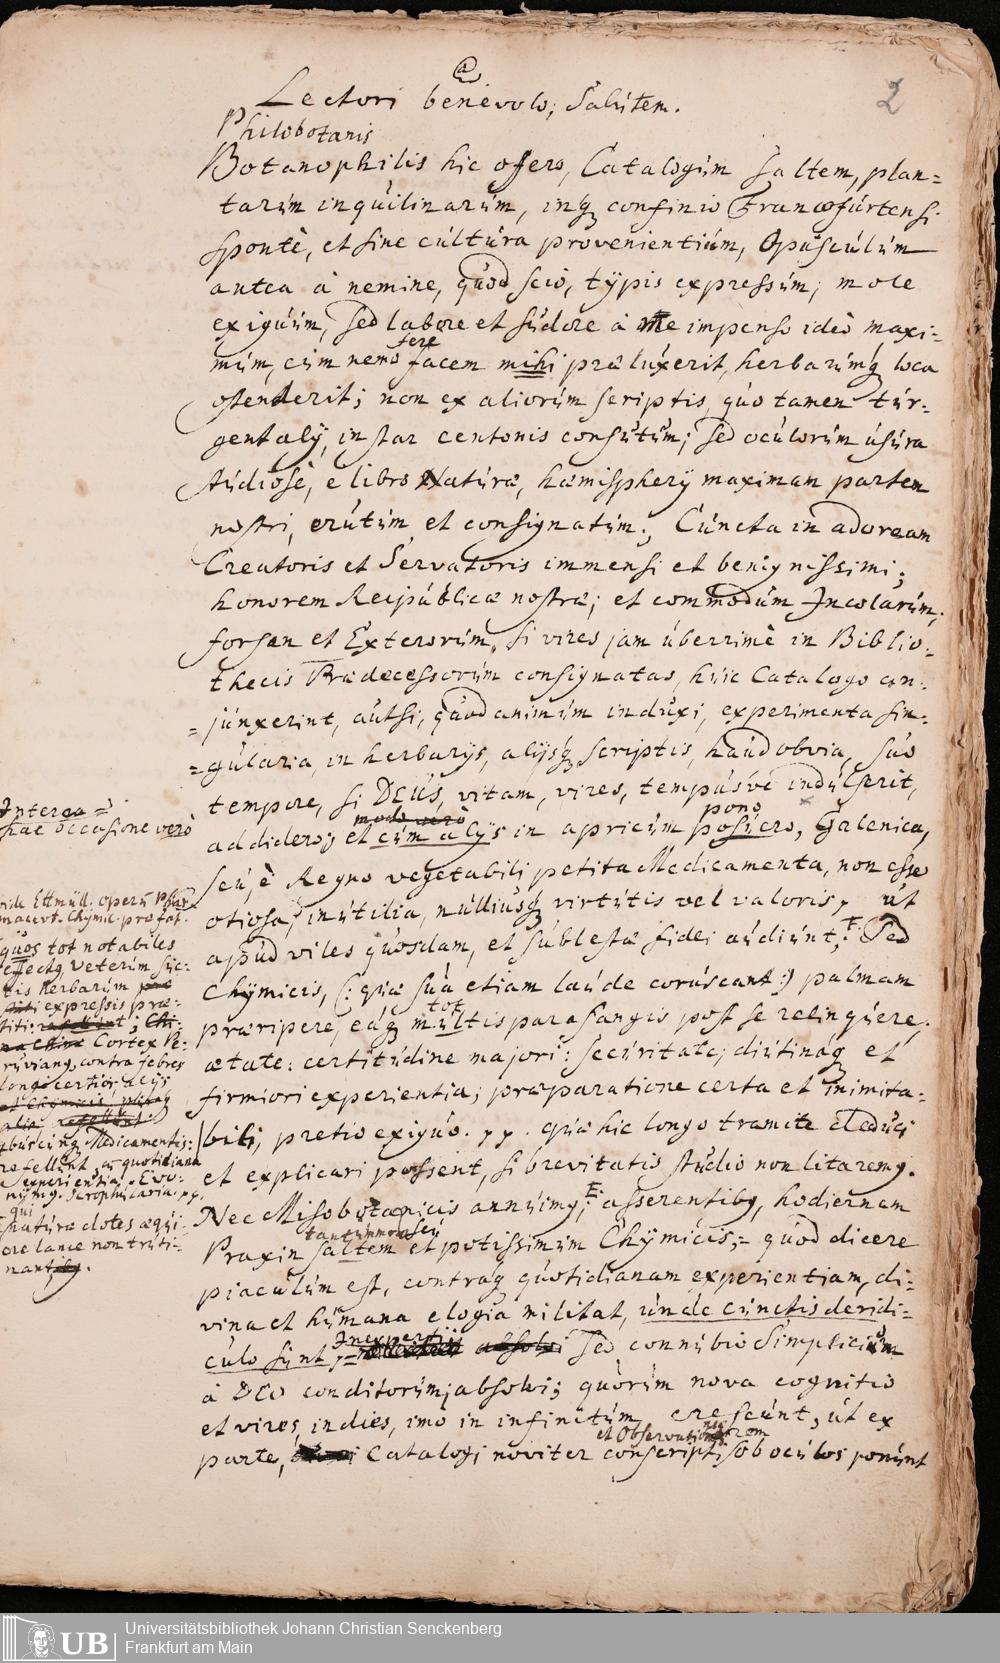 @
2
Lectori benevolo, Salutem.
Philobotanis
Botanophilis hic offero, Catalogum saltem, plan=
tarum inquilinarum, inq confinio Francofurtensi
sponte, et sine cultura provenientium, Opusculum
antea à nemine, quod scio, typis expressum; mole
exiguum, sed labore et sudore à me impenso ideò maxi=
mum, cum nemo fere facem mihi præluxerit, herbarumq loca
ostenderit; non ex aliorum scriptis, quo tamen tur=
gent alij, instar centonis consutum; sed oculorum usura
studiosè, e libro Naturæ, hæmispherij maximam partem
nostri, erutum et consignatum; Cuncta in adoream
Creatoris et Servatoris immensi et benignissimi;
honorem Reipublicæ nostræ; et commodum Incolarum,
forsan et Exterorum, si vires jam uberrimè in Biblio=
thecis Prædecessorum consignatas, huic Catalogo con=
=junxerint, autsi, quod animum induxi, experimenta sin=
=gularia, in herbarijs, alijsq scriptis, haud obvia, suo
tempore, si DEUS, vitam, vires, tempusve indulserit,
addidero; et modo verò cum alijs in apricum pono posuero, Galenica,
seu, è Regno vegetabili petita Medicamenta, non esse
otiosa, inutilia, nulliusq virtutis vel valoris, ut
apud viles quosdam, et sublestæ fidei audiunt, Sed
Chymicis, (: quæ sua etiam laude coruscant :) palmam
præripere, eaq multis tot parasangis post se relinquere,
ætate: certitudine majori: securitate; diutinaq et
firmiori experientia; præparatione certa et inimita=
bili, pretio exiguo. pp. quæ hic longo tramite deduci
et explicari possent, si brevitatis studio non litaremq.
Nec Misobotanicis annuimq; asserentibq, hodiernam
Praxin saltem tantummodo seu et potissimum Chymicis,= quod dicere
piaculum est, contraq quotidianam experientiam, di=
vina et humana elogia militat, unde cunctis deridi=
culo sunt, Inexperti absolvi Sed connubio Simplicium
à DEO conditorum absolvi; quorum nova cognitio
et vires, indies, imo in infinitum, crescunt, ut ex
parte, Catalogi noviter conscripti et Observationum sob oculos ponunt
Interea=
hac occasione verò
vide Ettmüll. operum Phar
maceut. Chymic. præfat.
quos tot notabiles
effectq Veterum suc=
cis herbarum
expressis præ=
stiti
Cortex Pe=
ruvianq, contra febres
longè certior, alijs
qbuscunq Medicamentis:
refellunt, quotidiana
experientia. Evo=
nymq. Scrophularia. pp.
qui
naturæ dotes æqui=
ore lance non truti=
nant.
UB
Universitätsbibliothek Johann Christian Senckenberg
Frankfurt am Main